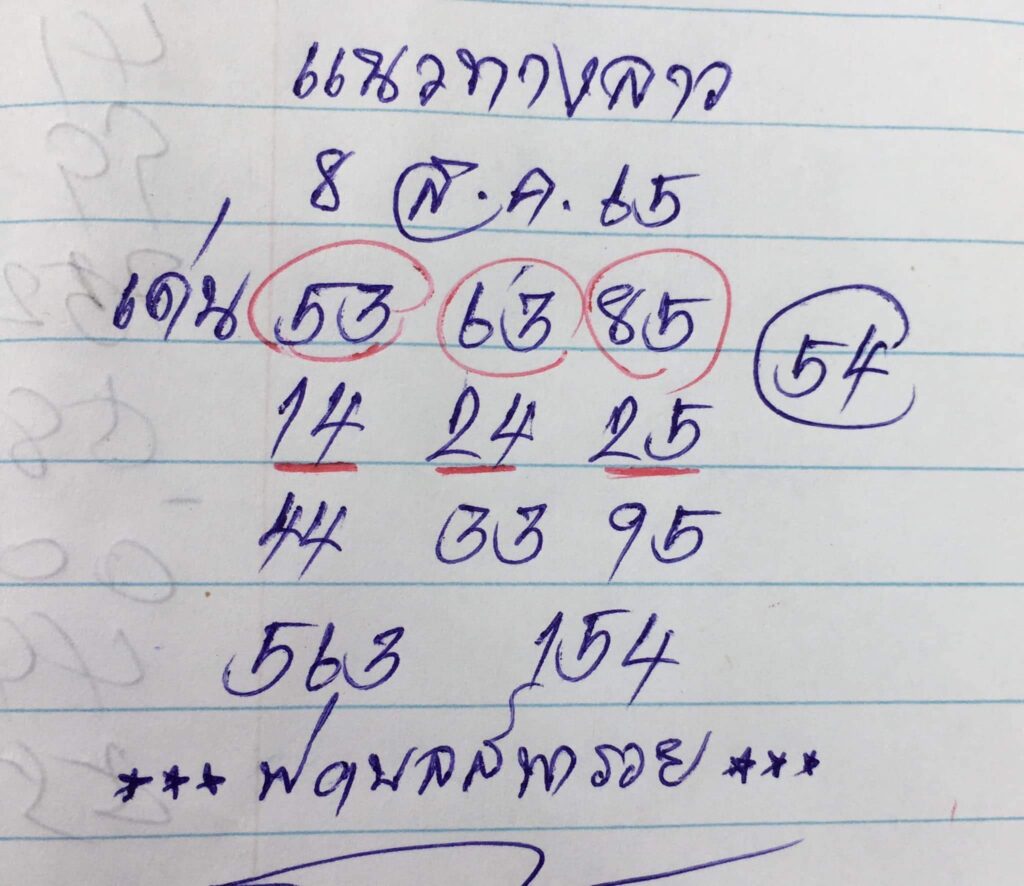 แนวทางลาว
8 ส.ค. 65
เด่น 53 63 85
54
14 24 25
44 33 95
563 154